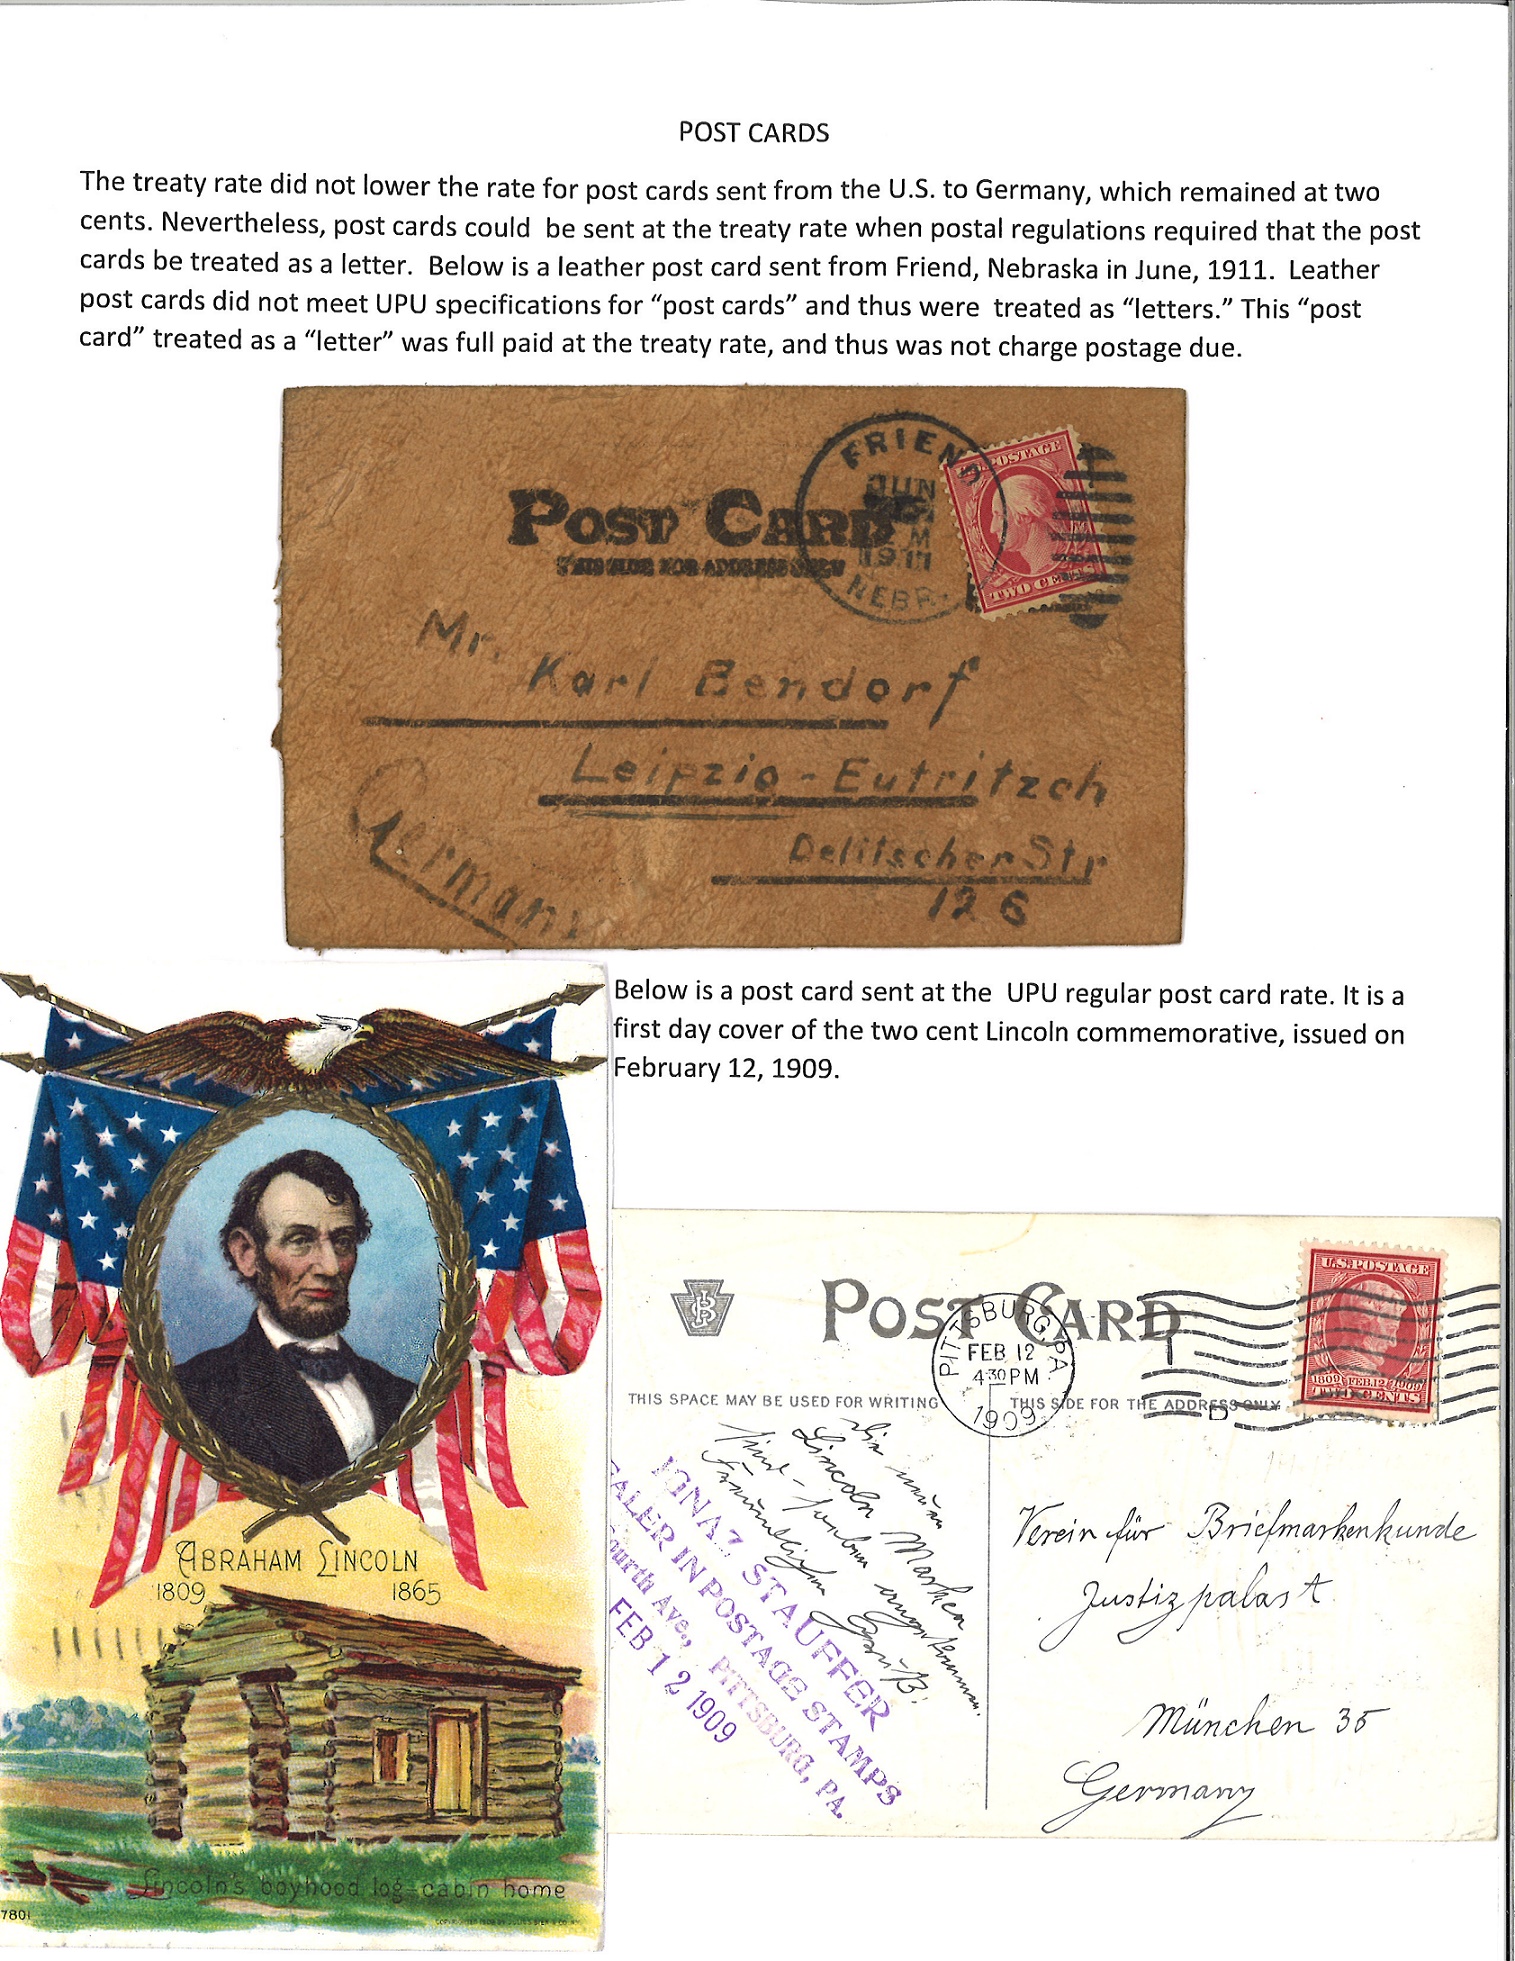 POST CARDS
The treaty rate did not lower the rate for post cards sent from the U.S. to Germany, which remained at two
cents. Nevertheless, post cards could be sent at the treaty rate when postal regulations required that the post
cards be treated as a letter. Below is a leather post card sent from Friend, Nebraska in June, 1911. Leather
post cards did not meet UPU specifications for “post cards” and thus were treated as “letters.” This “post
card” treated as a “letter” was full paid at the treaty rate, and thus was not charge postage due.
FRIEND
JUN
M
1911
NEBR.
U.S. POSTAGE
TWO CENTS
POST CARD
THIS SIDE FOR ADDRESS ONLY
Mr. Karl Bendorf
Leipzig-Eutritzch
Delitscher Str
126
Germany
Below is a post card sent at the UPU regular post card rate. It is a
first day cover of the two cent Lincoln commemorative, issued on
February 12, 1909.
ABRAHAM LINCOLN
1809 1865
Lincoln's boyhood log-cabin home
7801
POST CARD
PITTSBURG, PA.
FEB 12
4 30 PM
1909
U.S. POSTAGE
1809 FEB. 12 1909
TWO CENTS
THIS SPACE MAY BE USED FOR WRITING
THIS SIDE FOR THE ADDRESS ONLY
Die neuen
Lincoln Marken
sind soeben angekommen.
Freundlichen Gruß!
IGNAZ STAUFFER
EALER IN POSTAGE STAMPS
ourth Ave., PITTSBURG, PA.
FEB 12 1909
Verein für Briefmarkenkunde
Justizpalast
München 35
Germany